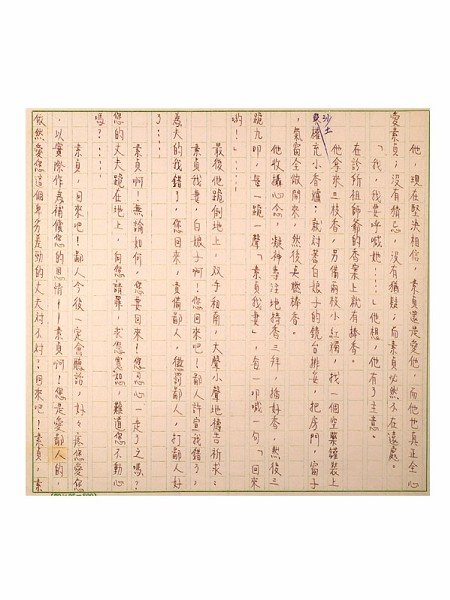 他,現在堅決相信,素貞還是愛他,而他也真正全心
愛素貞,沒有猜忌,沒有猶疑;而素貞必然不在遠處。
「我,我要呼喊她!……」他想,他有了主意。
在診所祖師爺的香案上就有棒香。
他拿來三枝香,另備兩枝小紅燭,找一個空藥罐裝上
沙土權充小香爐;就對著白娘子的鏡台排妥,把房門,窗子
,氣窗全敞開來,然後點燃棒香。
他收攝心念,凝神專注地持香三拜,插好香,然後三
跪九叩,每一跪一聲「素貞我妻」,每一叩喊一句「回來
喲!」……
最後他跪倒地上,双手和南,大聲小聲地禱告祈求:
素貞我妻,白娘子啊!您回來吧!鄙人許宣我錯了,
為夫的我錯了,您回來,責備鄙人,懲罰鄙人,打鄙人好
了……
素貞啊!無論如何,您要回來!您忍心一走了之嗎?
您的丈夫跪在地上,向您請罪,求您寬恕,難道您不動心
嗎?……
素貞,回來吧!鄙人今後一定會聽話,好々疼您愛您
,以實際作為補償您的恩情!!素貞啊!您是愛鄙人的,
依然愛您這個卑劣差勁的丈夫對不對?回來吧!素貞,素